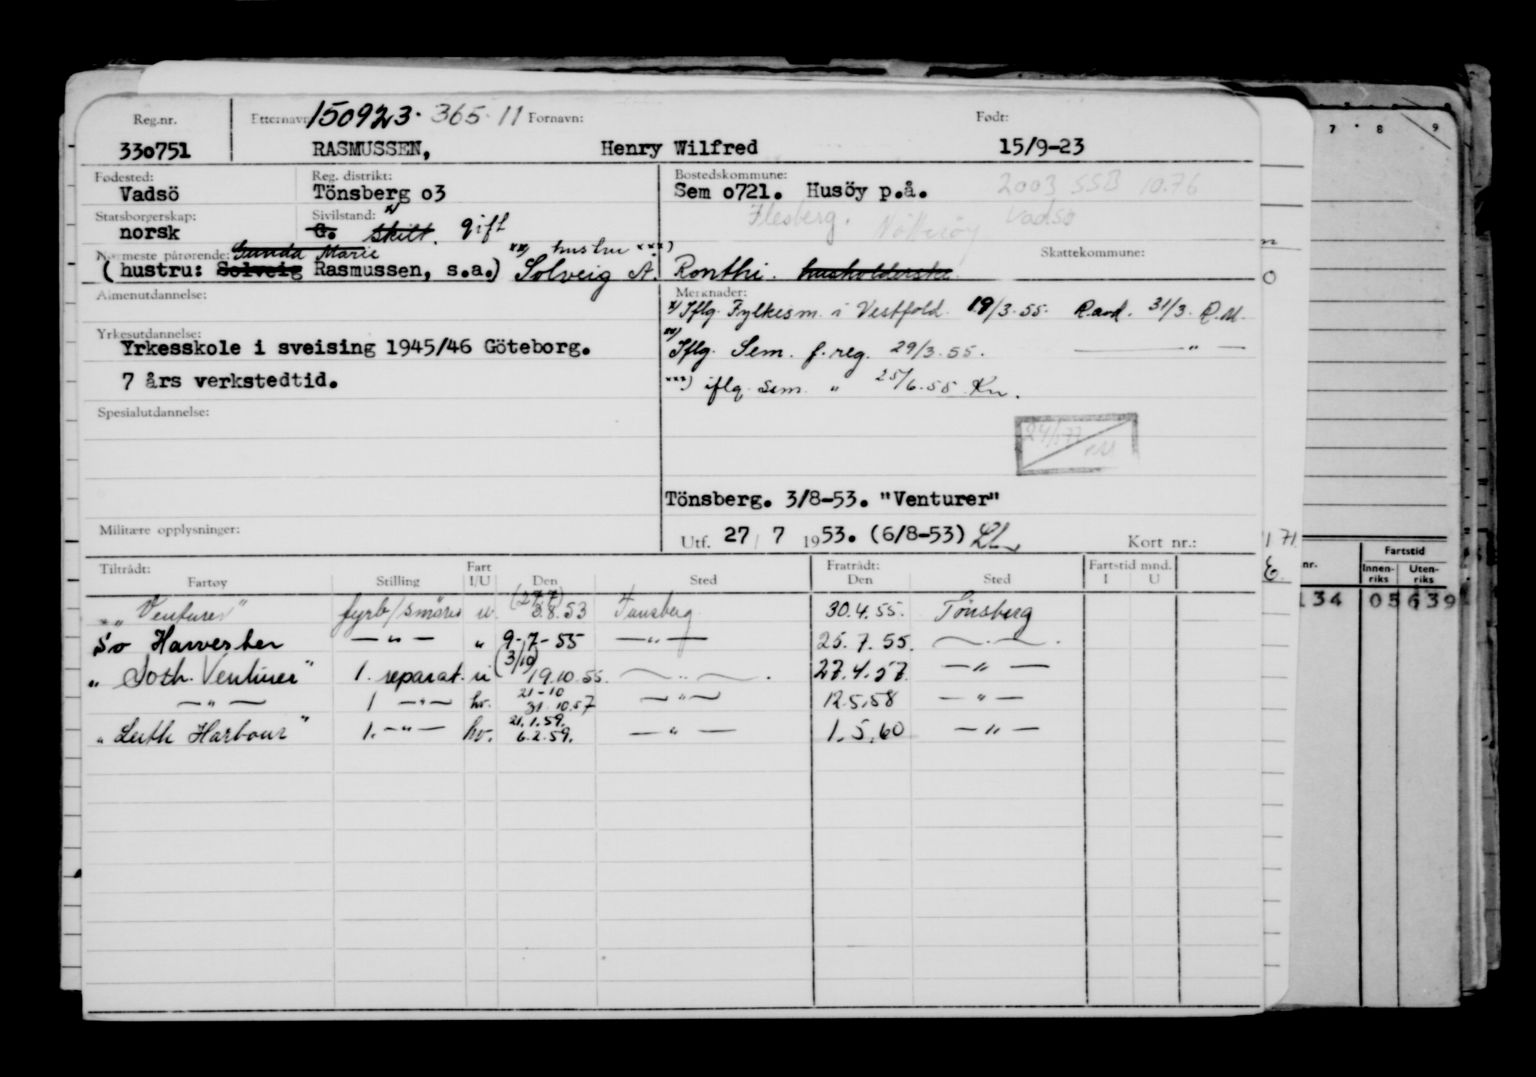 Reg.nr. Etternavn: 150923. 365.11 Fornavn: Født:
330751 RASMUSSEN, Henry Wilfred 15/9-23
Fødested: Reg. distrikt: Bostedskommune:
Vadsö Tönsberg 03 Sem 0721. Husöy p.å. 2003 SSB 10.76
Statsborgerskap: Sivilstand: x) Flesberg. Nötteröy Vadsö
norsk G. Skilt. gift
Nærmeste pårørende: Gunda Marie xx) hustru xxx) Skattekommune:
(hustru: Solveig Rasmussen, s.a.) Solveig A. Ronthi. husholderske
Almenutdannelse: Merknader:
x) Iflg. Fylkesm. i Vestfold 19/3-55. R.avd. 31/3. R.M.
Yrkesutdannelse: xx)
Yrkesskole i sveising 1945/46 Göteborg. Iflg. Sem. f.reg. 29/3.55. — " —
7 års verkstedtid. xxx) iflg. Sem. " 25/6.55 Kn.
Spesialutdannelse:
24/1 77
Tönsberg. 3/8-53. "Venturer"
Militære opplysninger: Utf. 27 / 7 1953. (6/8-53) Kort nr.:
Tiltrådt: Fart Fratrådt: Fartstid mnd.
Fartøy Stilling I/U Den Sted Den Sted I U
"Venturer" fyrb/smörer u. (27/7) 3.8.53 Tønsberg 30.4.55. Tönsberg
S/o Harvester — " — " 9-7-55 — " — 25.7.55.
" Soth. Venturer" 1. reparat. u (3/10) 19.10.55. 27.4.57
— " — 1 — " — hv. 21-10 31.10.57 — " — 12.5.58 — " —
" Leith Harbour" 1. — " — hv. 21.1.59. 6.2.59. — " — 1.5.60 — " —
7 8 9
71
E.
nr. Fartstid
Innen-riks Uten-riks
134 05 639